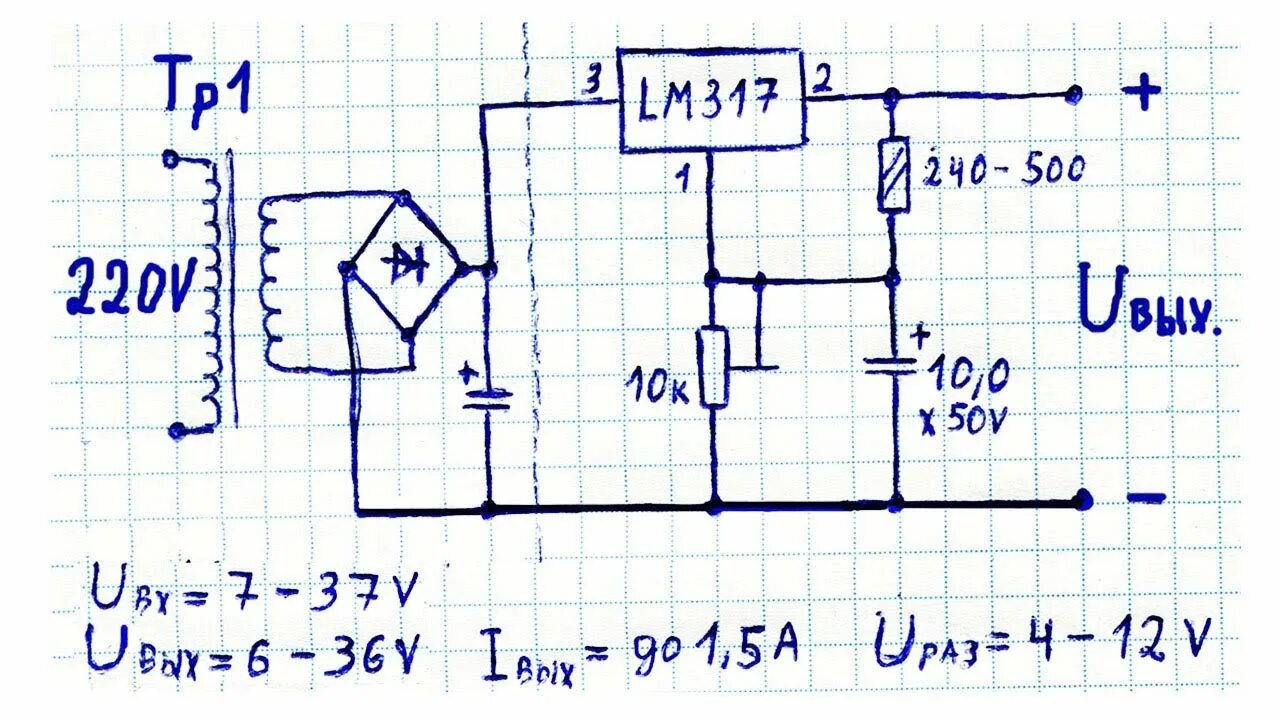 Тр1
3
LM317
2
+
1
240-500
220V
U вых.
+
10к
+
10,0
x 50V
-
U вх = 7 - 37V
U вых = 6 - 36V I вых = до 1,5А U раз = 4 - 12V